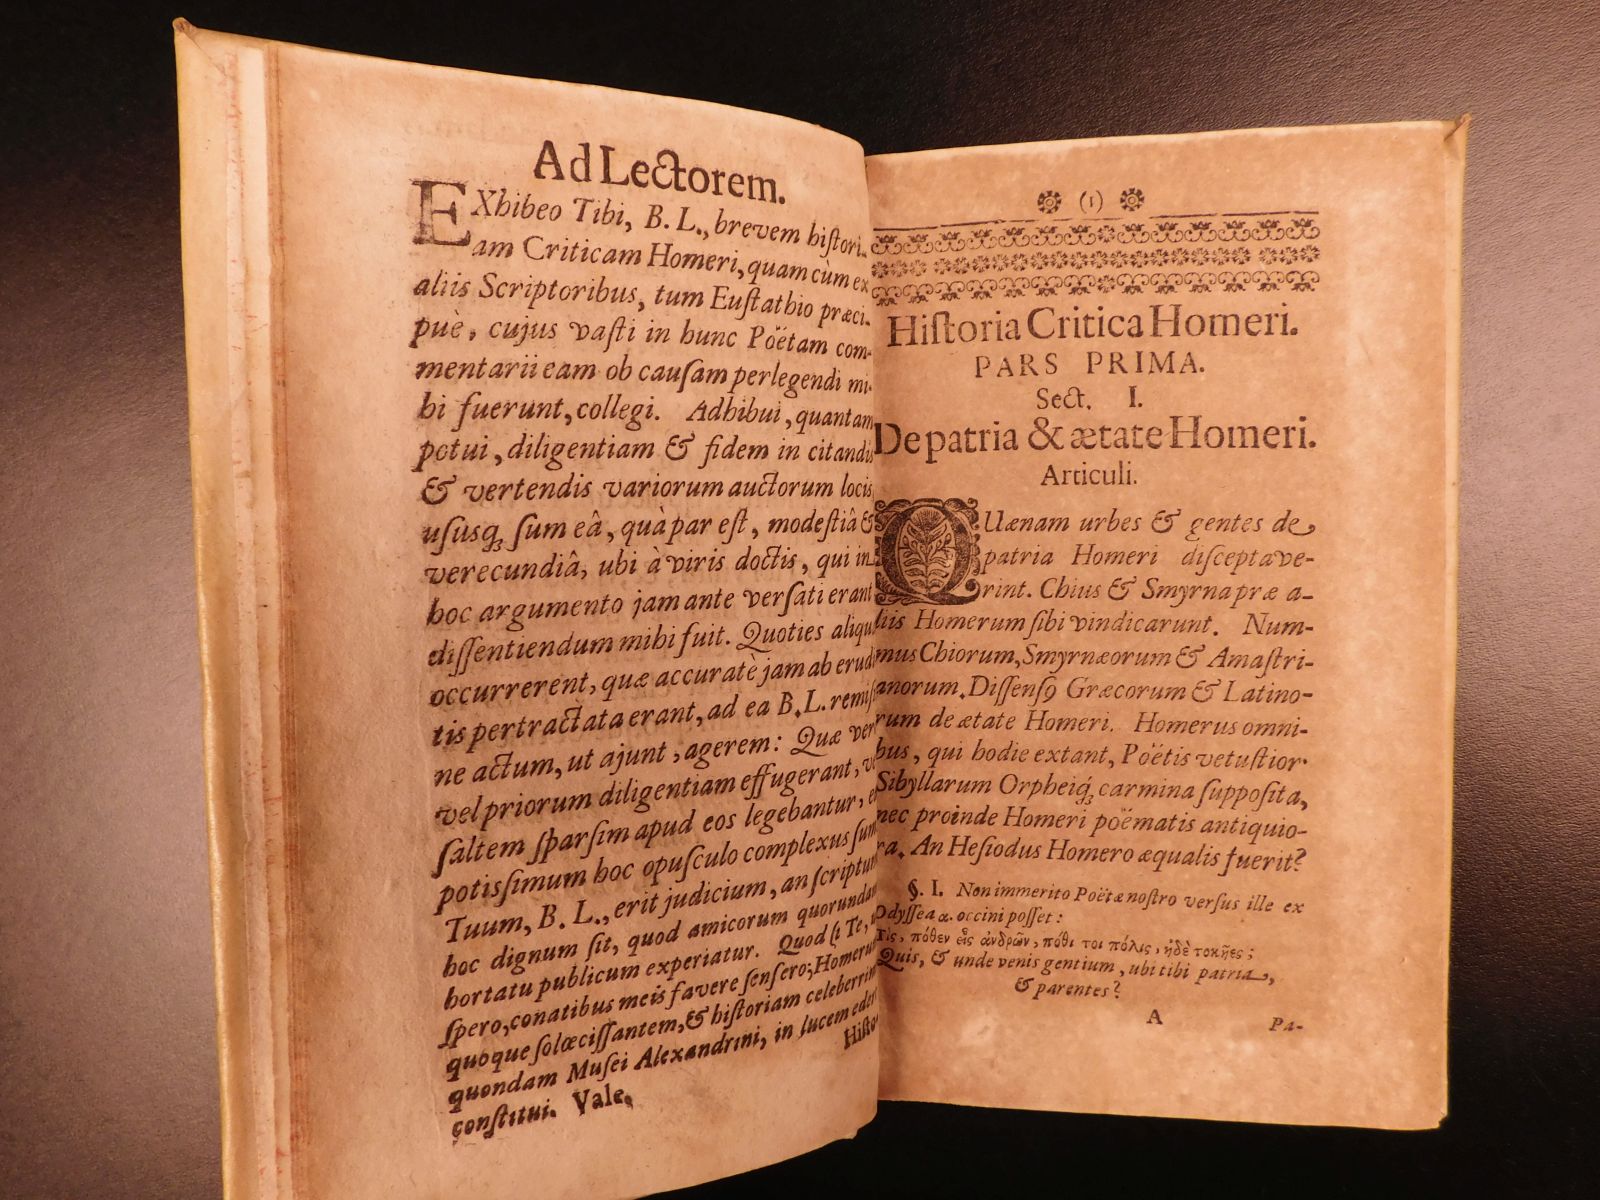 Ad Lectorem.
EXhibeo Tibi, B. L., brevem histori-
am Criticam Homeri, quam cùm ex
aliis Scriptoribus, tum Eustathio præci-
puè, cujus vasti in hunc Pöëtam com-
mentarii eam ob causam perlegendi mi-
hi fuerunt, collegi. Adhibui, quantam
potui, diligentiam & fidem in citandis
& vertendis variorum auctorum locis
ususq; sum eâ, quà par est, modestiâ &
verecundiâ, ubi à viris doctis, qui in
hoc argumento jam ante versati erant
dissentiendum mihi fuit. Quoties aliqu
occurrerent, quæ accuratè jam ab erudi
tis pertractata erant, ad ea B. L. remis
ne actum, ut ajunt, agerem: Quæ ver
vel priorum diligentiam effugerant, ve
saltem sparsim apud eos legebantur, e
potissimum hoc opusculo complexus sum
Tuum, B. L., erit judicium, an scriptum
hoc dignum sit, quod amicorum quorundam
hortatu publicum experiatur. Quod si Te,
spero, conatibus meis favere sensero; Homerum
quoque solœcissantem, & historiam celeberrim
quondam Musei Alexandrini, in lucem eder
constitui. Vale.
Histo-
(1)
Historia Critica Homeri.
PARS PRIMA.
Sect. I.
De patria & ætate Homeri.
Articuli.
QUænam urbes & gentes de
patria Homeri disceptave-
rint. Chius & Smyrna præ a-
liis Homerum sibi vindicarunt. Num-
mus Chiorum, Smyrnæorum & Amastri-
anorum. Dissensꝰ Græcorum & Latino-
rum de ætate Homeri. Homerus omni-
bus, qui hodie extant, Poëtis vetustior.
Sibyllarum Orpheiq; carmina supposita,
nec proinde Homeri poëmatis antiquio-
ra. An Hesiodus Homero æqualis fuerit?
§. I. Non immerito Poëtæ nostro versus ille ex
Odyssea α. occini posset:
Τίς, πόθεν εἶς ἀνδρῶν, πόθι τοι πόλις, ἠδὲ τοκῆες;
Quis, & unde venis gentium, ubi tibi patria,
& parentes?
A
Pa-